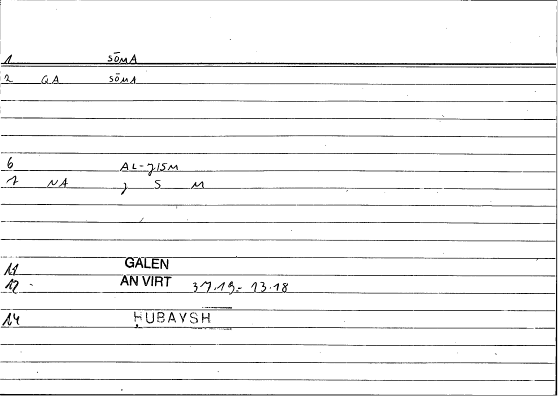 1 SŌMA
2 QA SŌMA
6 AL-JISM
7 NA J S M
11 GALEN
12 AN VIRT 37.19- 13.18
14 ḤUBAYSH